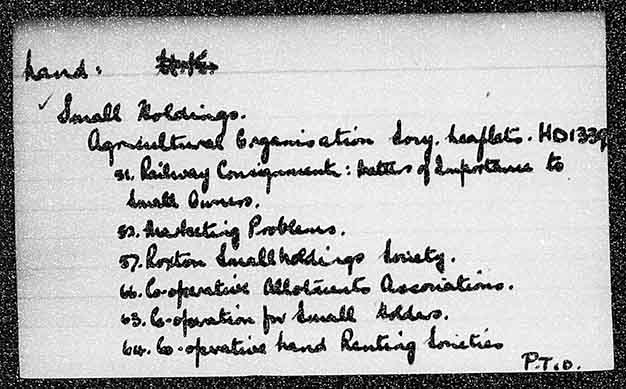 Land:
✓ Small Holdings.
Agricultural Organisation Socy. Leaflets. HD1339
51. Railway Consignments: Matters of Importance to
Small Owners.
52. Marketing Problems.
57. Roxton Smallholdings Society.
Co-operative Allotments Associations.
63. Co-operation for Small Holders.
64. Co-operative Land Renting Societies
P.T.O.